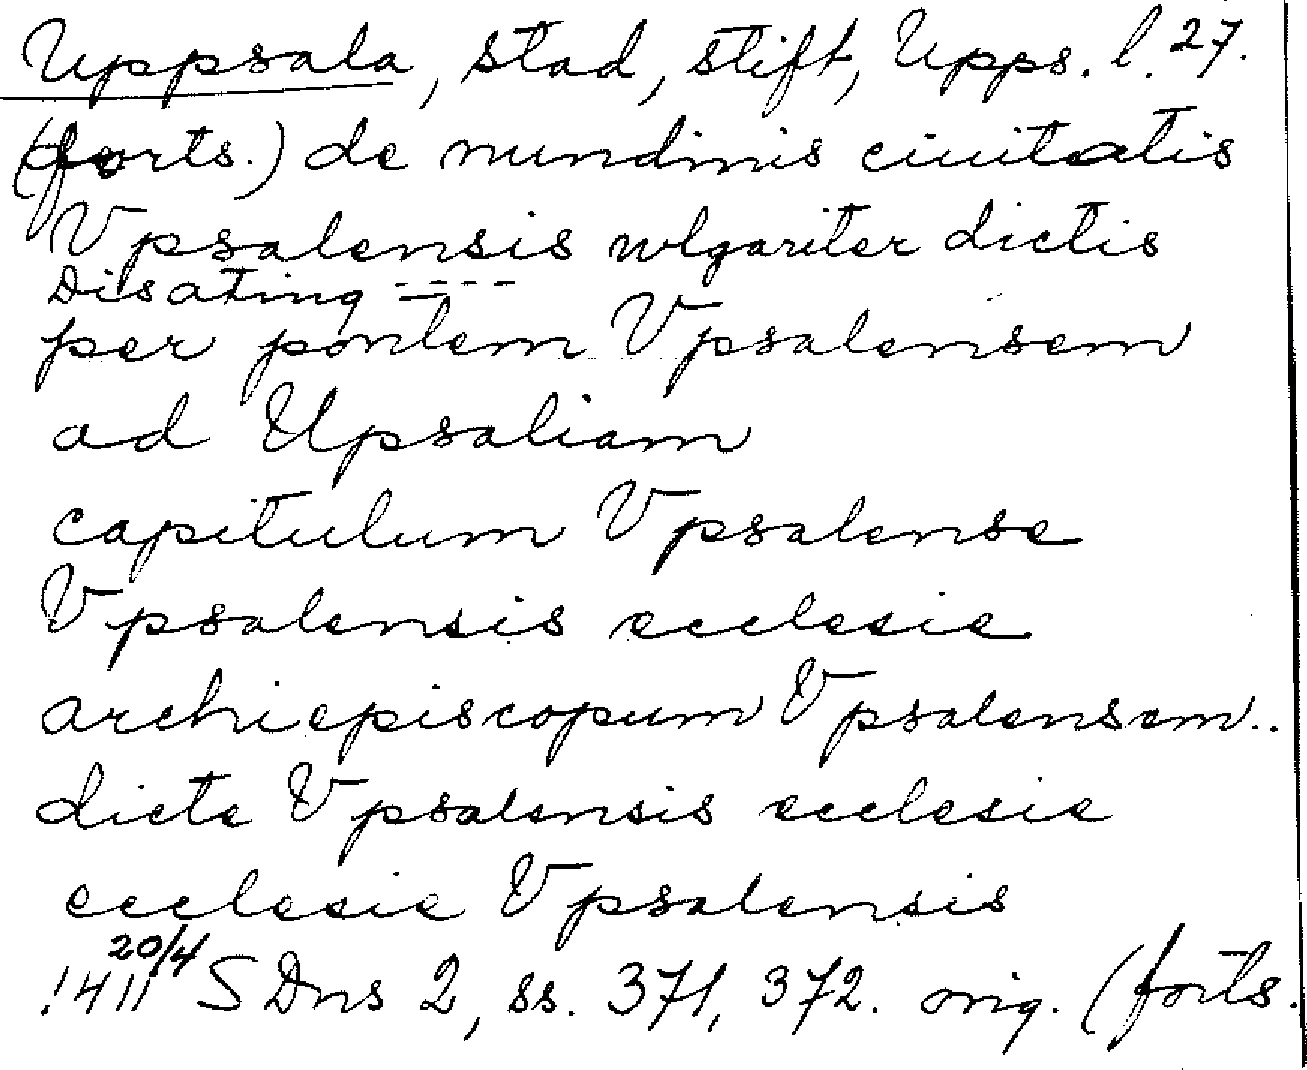 Uppsala, stad, stift, Upps. l. 27.
(forts.) de nundinis ciuitatis
Vpsalensis wlgariter dictis
Disating - - - -
per pontem Vpsalensem
ad Upsaliam
capitulum Vpsalense
Vpsalensis ecclesie
archiepiscopum Vpsalensem..
dicte Vpsalensis ecclesie
ecclesie Vpsalensis
1411 20/4 SDns 2, ss. 371, 372. orig. (forts.